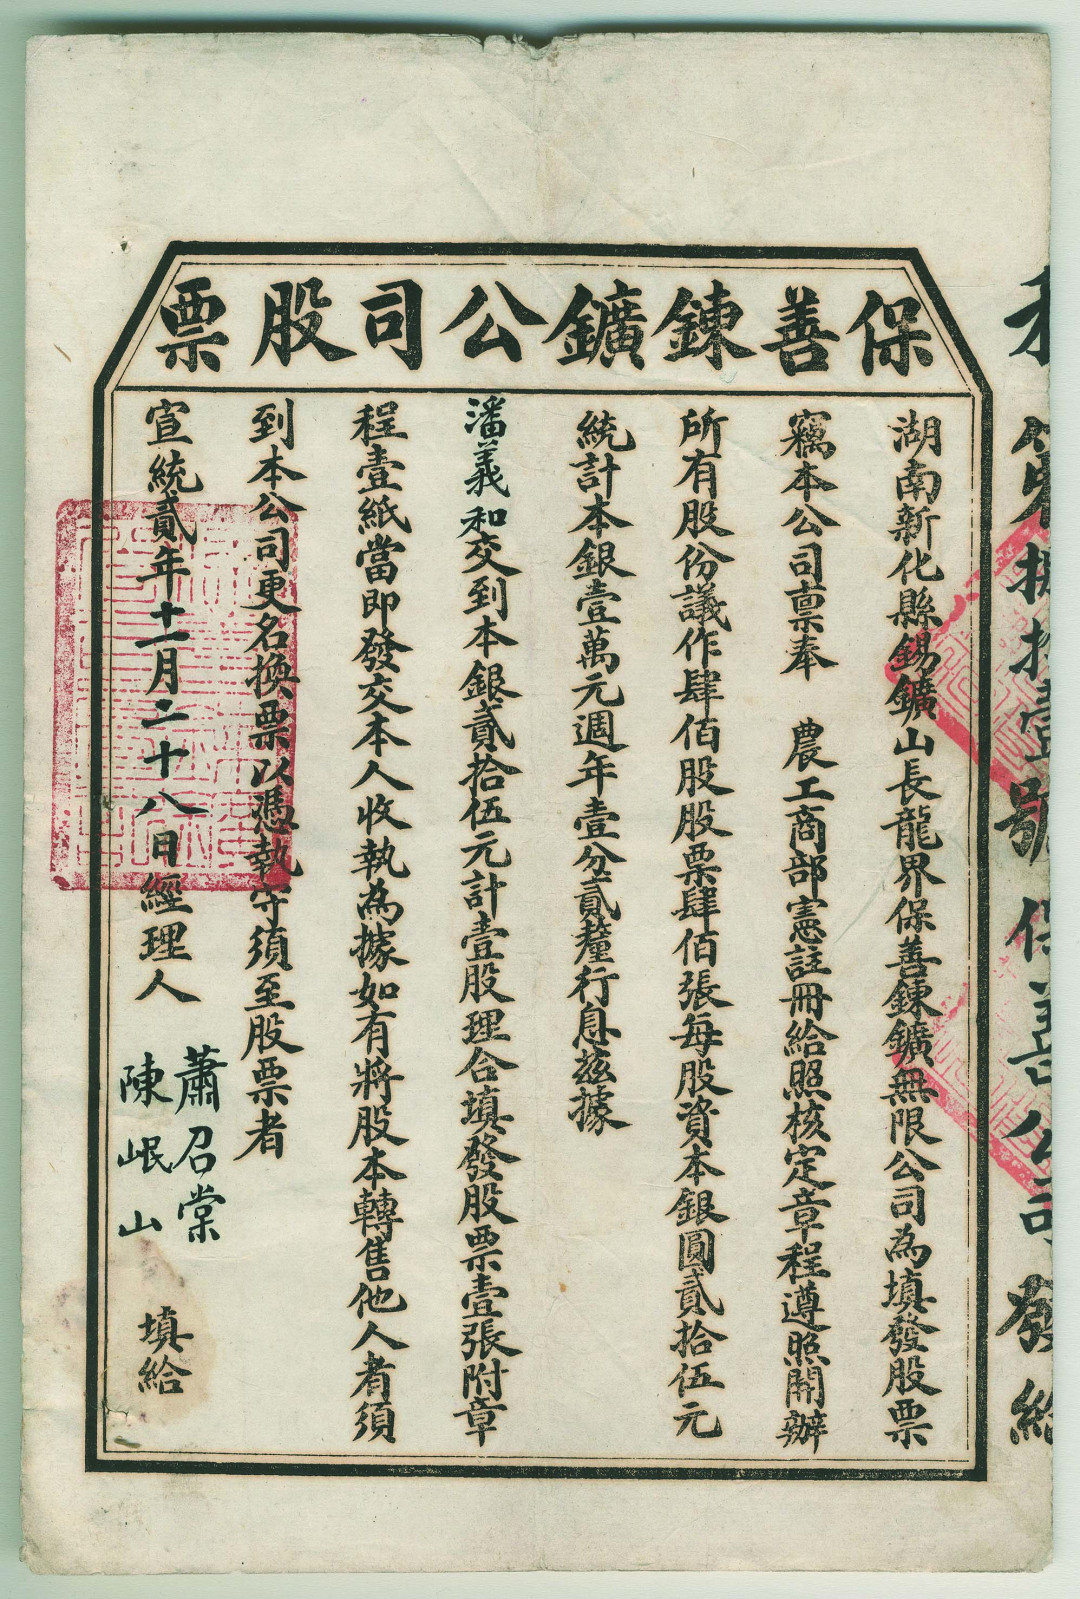 保善鍊鑛公司股票
湖南新化縣錫鑛山長龍界保善鍊鑛無限公司為填發股票
竊本公司稟奉 農工商部憲註冊給照核定章程遵照開辦
所有股份議作肆佰股股票肆佰張每股資本銀圓貳拾伍元
統計本銀壹萬元週年壹分貳釐行息茲據
潘義和交到本銀貳拾伍元計壹股理合填發股票壹張附章
程壹紙當即發交本人收執為據如有將股本轉售他人者須
到本公司更名換票以憑執守須至股票者
宣統貳年十一月二十八日經理人 蕭召棠 陳岷山 填給
壹號保善公司發給